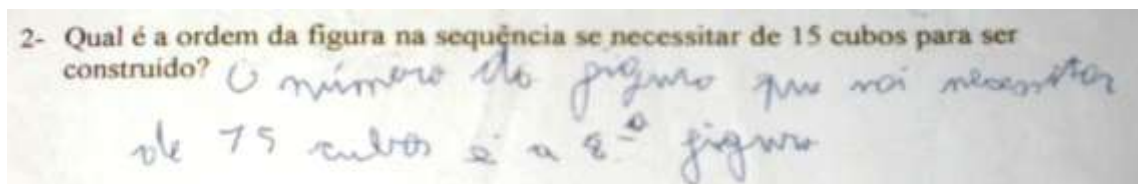 2- Qual é a ordem da figura na sequência se necessitar de 15 cubos para ser
construído? O número da figura que vai necessitar
de 15 cubos é a 8ª figura